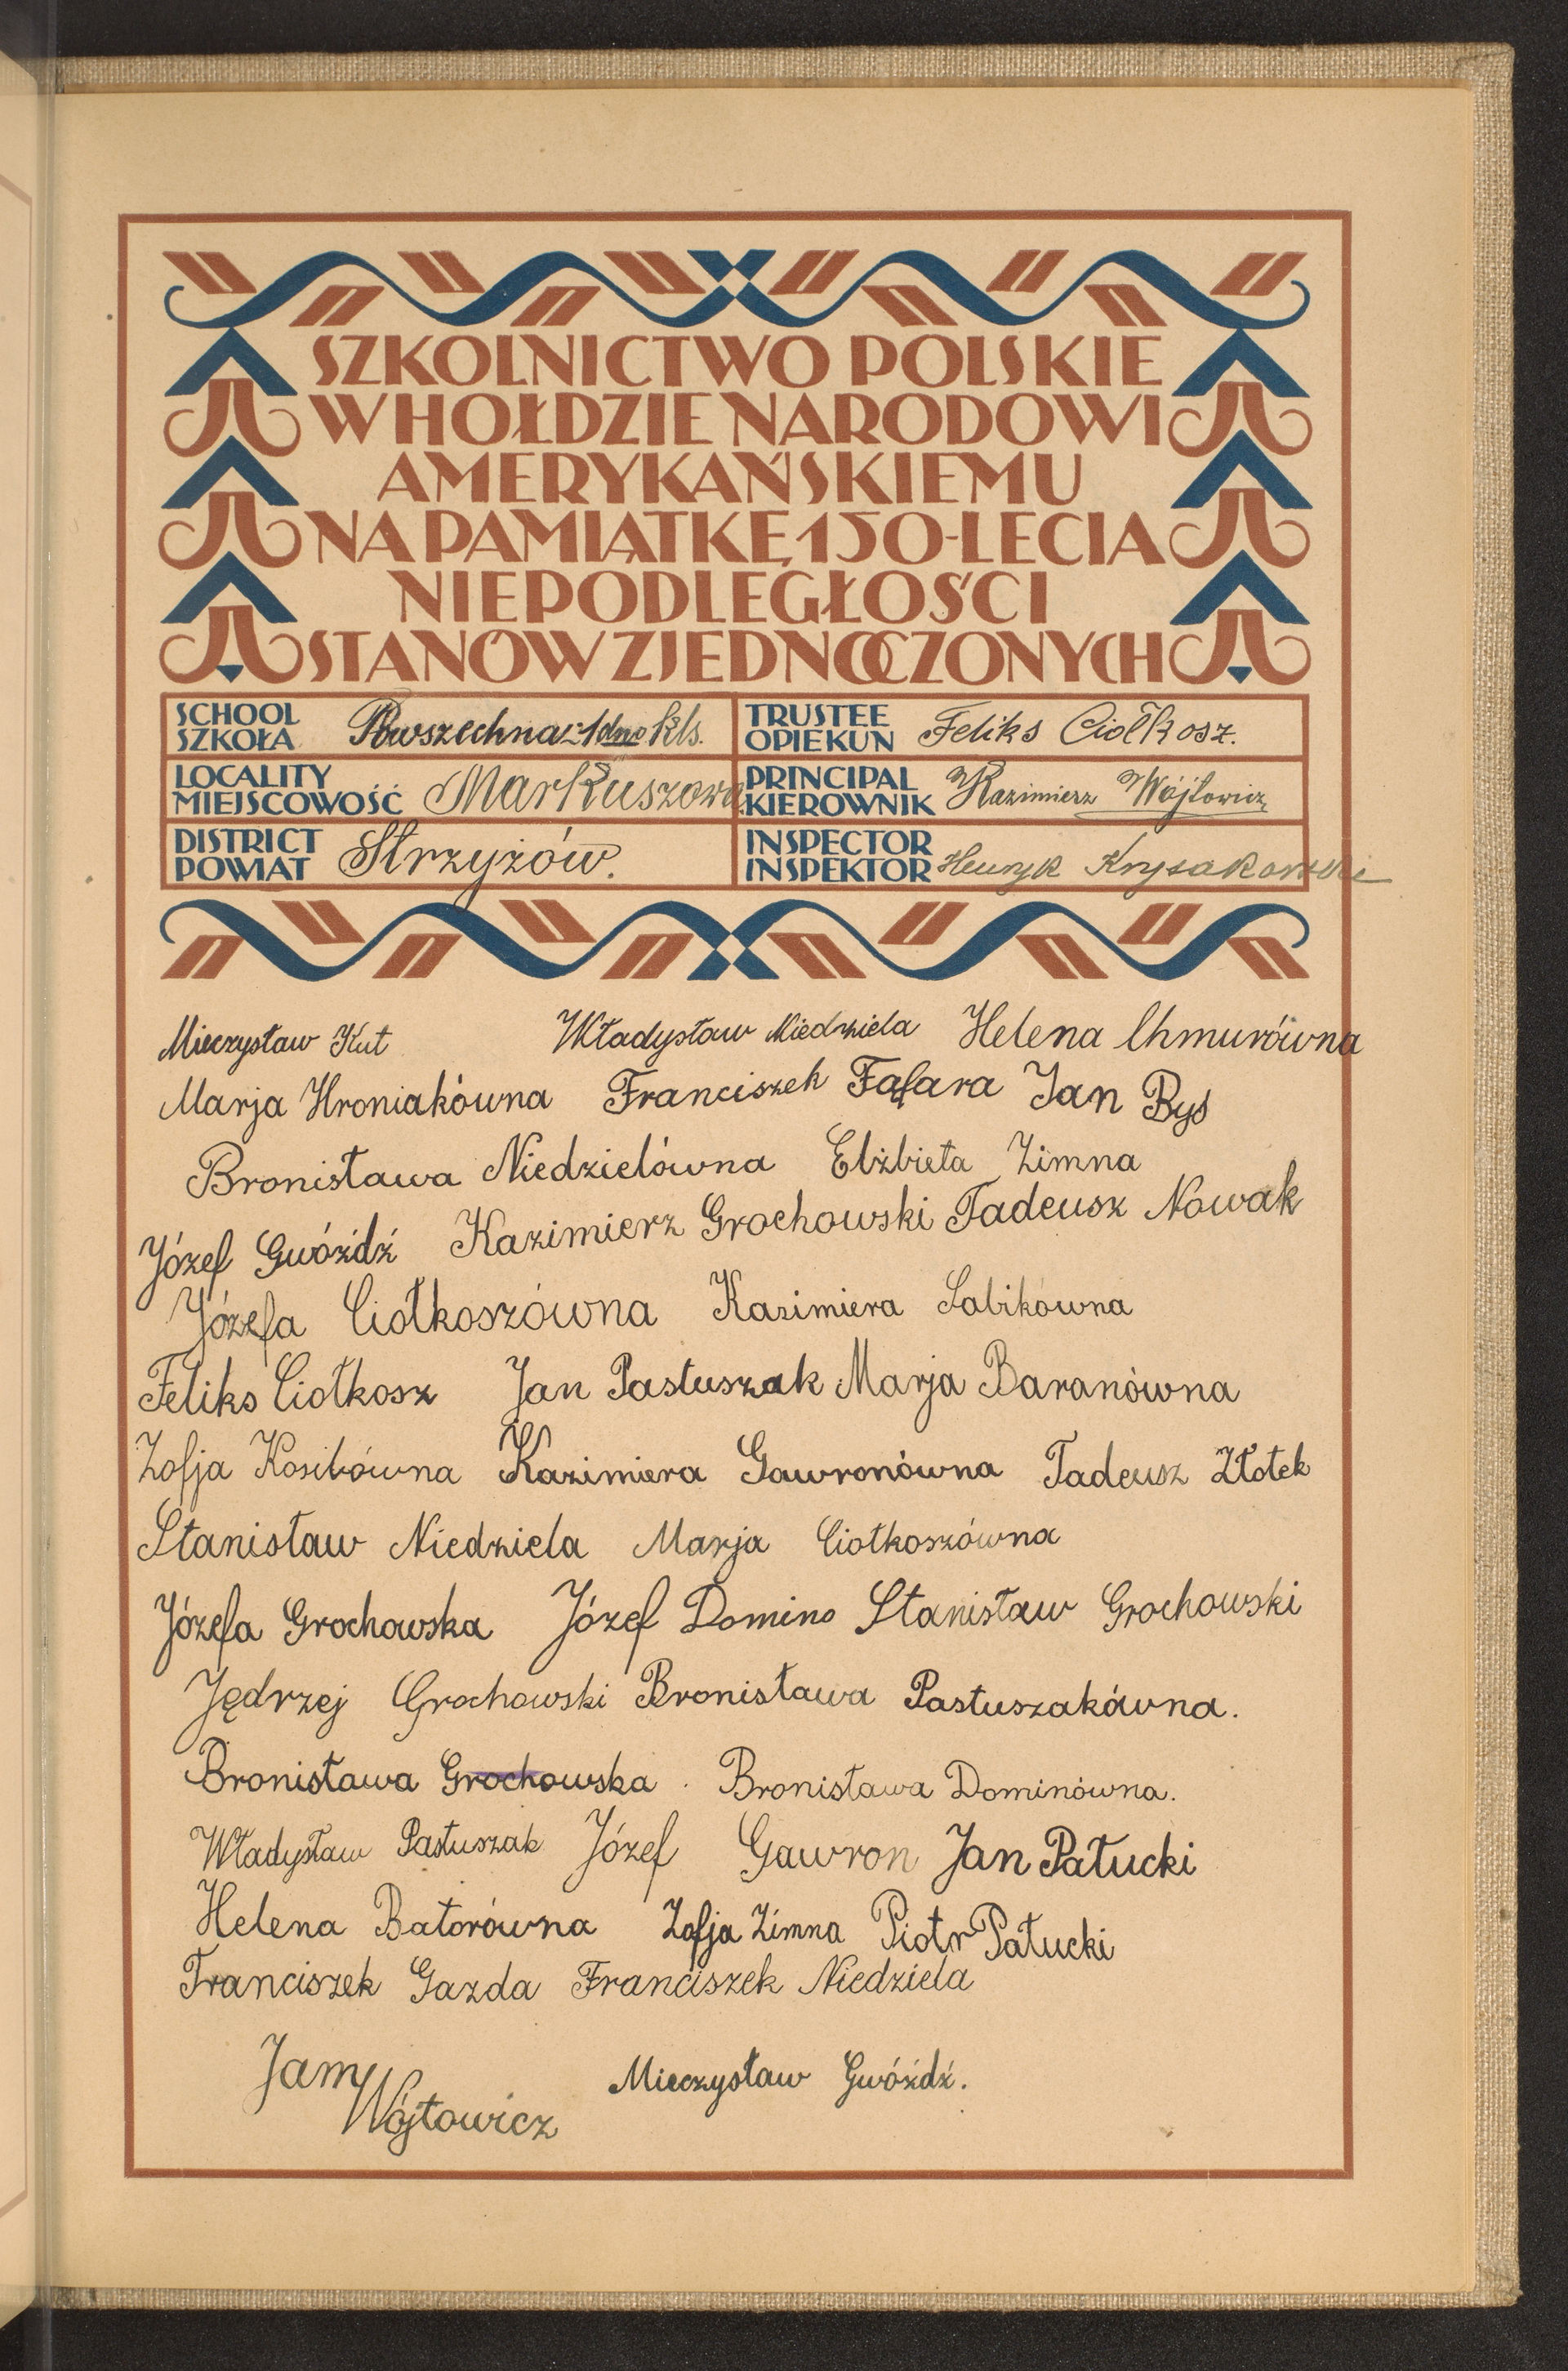 SZKOLNICTWO POLSKIE
W HOŁDZIE NARODOWI
AMERYKAŃSKIEMU
NA PAMIĄTKĘ 150-LECIA
NIEPODLEGŁOŚCI
STANÓW ZJEDNOCZONYCH
SCHOOL
SZKOŁA Powszechna 1dno kls.
TRUSTEE
OPIEKUN Feliks Ciołkosz.
LOCALITY
MIEJSCOWOŚĆ Markuszowa
PRINCIPAL
KIEROWNIK Kazimierz Wójtowicz
DISTRICT
POWIAT Strzyżów.
INSPECTOR
INSPEKTOR Henryk Krysakowski
Mieczysław Kut Władysław Niedziela Helena Chmurówna
Marja Hroniakówna Franciszek Fąfara Jan Byś
Bronisława Niedzielówna Elżbieta Zimna
Józef Gwóźdź Kazimierz Grochowski Tadeusz Nowak
Józefa Ciołkoszówna Kazimiera Sabikówna
Feliks Ciołkosz Jan Pastuszak Marja Baranówna
Zofja Kosibówna Kazimiera Gawronówna Tadeusz Złotek
Stanisław Niedziela Marja Ciołkoszówna
Józefa Grochowska Józef Domino Stanisław Grochowski
Jędrzej Grochowski Bronisława Pastuszakówna.
Bronisława Grochowska. Bronisława Dominówna.
Władysław Pastuszak Józef Gawron Jan Pałucki
Helena Batorówna Zofja Zimna Piotr Pałucki
Franciszek Gazda Franciszek Niedziela
Mieczysław Gwóźdź.
Wójtowicz